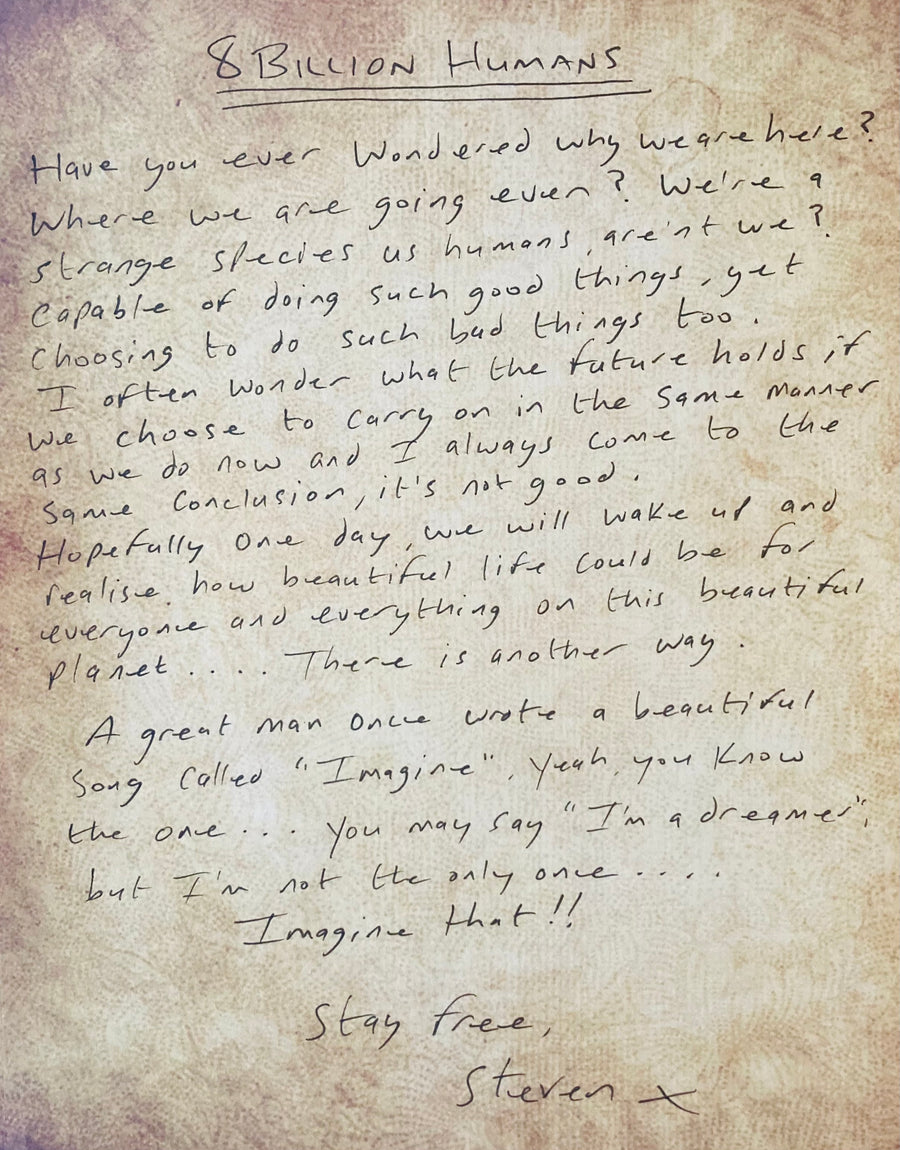 8 BILLION HUMANS
Have you ever Wondered why we are here?
Where we are going even? We're a
strange species us humans, are'nt we?
Capable of doing such good things, yet
Choosing to do such bad things too.
I often wonder what the future holds if
we choose to carry on in the same manner
as we do now and I always come to the
same conclusion, it's not good.
Hopefully one day, we will wake up and
realise how beautiful life could be for
everyone and everything on this beautiful
planet..... There is another way.
A great man once wrote a beautiful
song called "Imagine", Yeah, you know
the one... you may say "I'm a dreamer",
but I'm not the only once....
Imagine that!!
Stay free,
Steven x